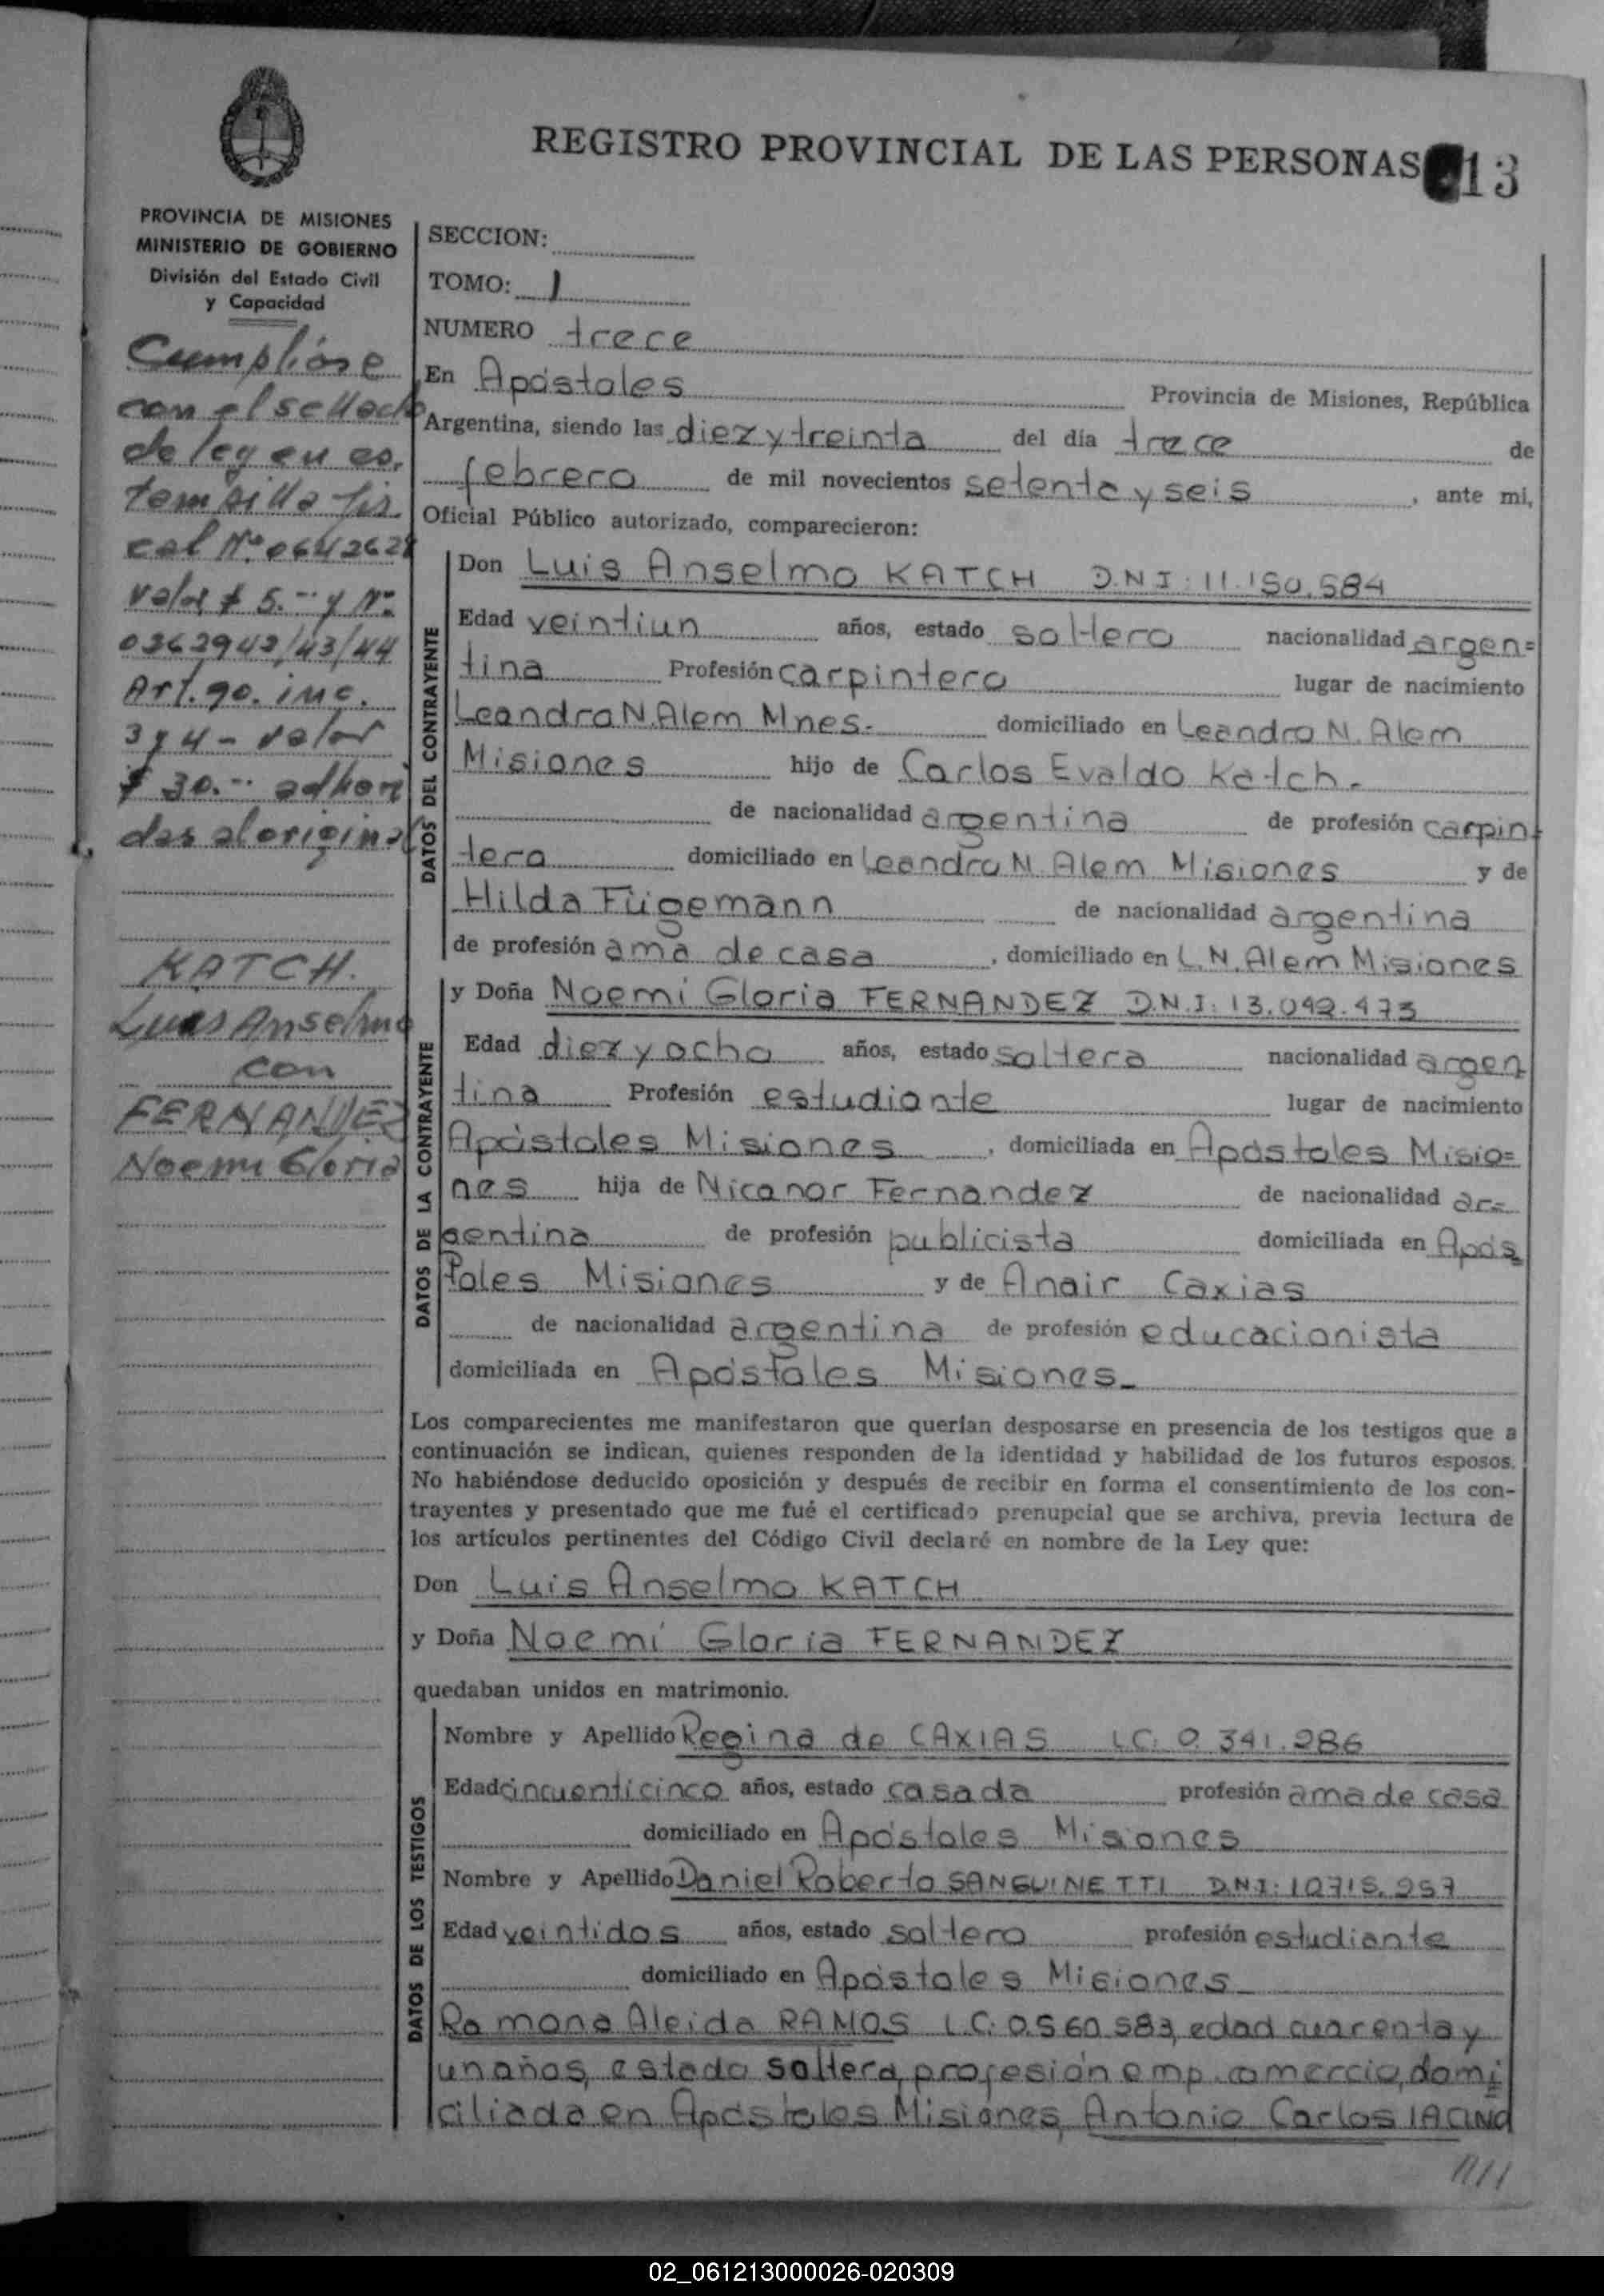 REGISTRO PROVINCIAL DE LAS PERSONAS 13
PROVINCIA DE MISIONES
MINISTERIO DE GOBIERNO
División del Estado Civil
y Capacidad
Cumplióse
con el sellado
de ley en es.
tampilla fis
cal Nº 0642628
valor $ 5.-- y Nº
0362942/43/44
Art. 90. inc.
3 y 4 - valor
$ 30.-- adheri
das al original
KATCH.
Luis Anselmo
con
FERNANDEZ
Noemi Gloria
SECCION:
TOMO: 1
NUMERO trece
En Apóstoles Provincia de Misiones, República
Argentina, siendo las diez y treinta del día trece de
febrero de mil novecientos setenta y seis, ante mi,
Oficial Público autorizado, comparecieron:
DATOS DEL CONTRAYENTE
Don Luis Anselmo KATCH D.N.I: 11.150.584
Edad veintiun años, estado soltero nacionalidad argen=
tina Profesión carpintero lugar de nacimiento
Leandro N. Alem Mnes.- domiciliado en Leandro N. Alem
Misiones hijo de Carlos Evaldo Katch.-
de nacionalidad argentina de profesión carpin-
tero domiciliado en Leandro N. Alem Misiones y de
Hilda Fügemann de nacionalidad argentina
de profesión ama de casa, domiciliado en L.N. Alem Misiones
DATOS DE LA CONTRAYENTE
y Doña Noemí Gloria FERNANDEZ D.N.I: 13.042.473
Edad diez y ocho años, estado soltera nacionalidad argen
tina Profesión estudiante lugar de nacimiento
Apóstoles Misiones, domiciliada en Apóstoles Misio=
nes hija de Nicanor Fernandez de nacionalidad ar=
gentina de profesión publicista domiciliada en Após
toles Misiones y de Anair Caxias
de nacionalidad argentina de profesión educacionista
domiciliada en Apóstoles Misiones.-
Los comparecientes me manifestaron que querían desposarse en presencia de los testigos que a
continuación se indican, quienes responden de la identidad y habilidad de los futuros esposos.
No habiéndose deducido oposición y después de recibir en forma el consentimiento de los con-
trayentes y presentado que me fué el certificado prenupcial que se archiva, previa lectura de
los artículos pertinentes del Código Civil declaré en nombre de la Ley que:
Don Luis Anselmo KATCH
y Doña Noemí Gloria FERNANDEZ
quedaban unidos en matrimonio.
DATOS DE LOS TESTIGOS
Nombre y Apellido Regina de CAXIAS L.C: 0.341.286
Edad cincuenticinco años, estado casada profesión ama de casa
domiciliado en Apóstoles Misiones
Nombre y Apellido Daniel Roberto SANGUINETTI D.N.I: 10715.957
Edad veintidos años, estado soltero profesión estudiante
domiciliado en Apóstoles Misiones
Ramona Aleida RAMOS L.C: 0.560.583, edad cuarenta y
un años, estado soltera, profesión emp. comercio, domi
ciliada en Apóstoles Misiones, Antonio Carlos IACINO
////
02_061213000026-020309